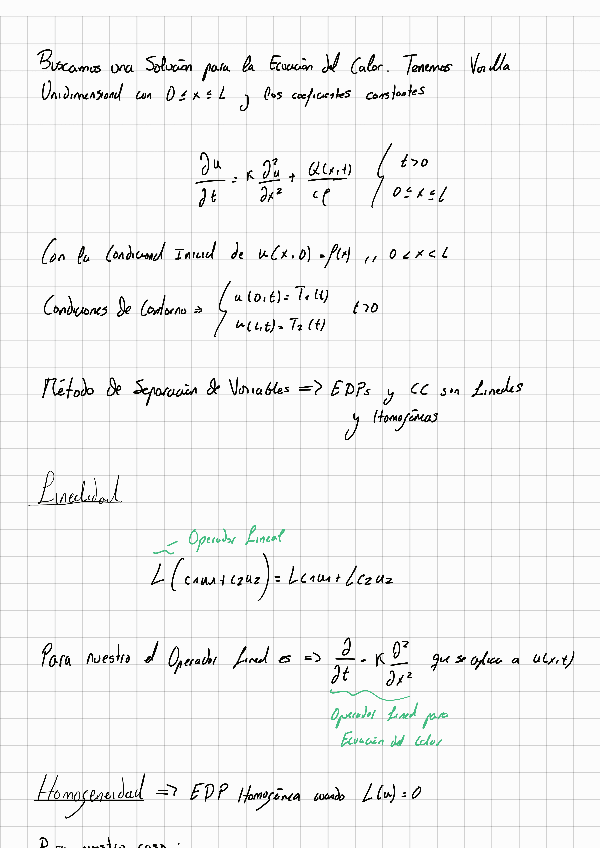 Buscamos una Solución para la Ecuación del Calor. Tenemos Varilla
Unidimensional con 0 ≤ x ≤ L y los coeficientes constantes
∂u/∂t = K ∂²u/∂x² + Q(x,t)/cρ { t>0
0 ≤ x ≤ L
Con la Condicional Inicial de u(x,0) = f(x) ,, 0 < x < L
Condiciones de Contorno => { u(0,t) = T₁(t)
u(L,t) = T₂(t) t>0
Método de Separación de Variables => EDPs y CC son Lineales
y Homogéneas
Linealidad
Operador Lineal
L(c1u1+c2u2) = Lc1u1 + Lc2u2
Para nuestro el Operador Lineal es => ∂/∂t - K ∂²/∂x² que se aplica a u(x,t)
Operador Lineal para
Ecuación del Calor
Homogeneidad => EDP Homogénea cuando L(u) = 0
Para nuestro caso: